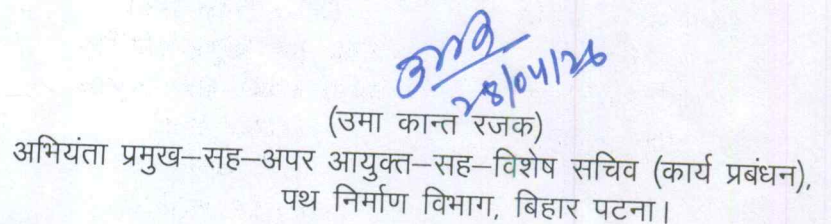 28/04/26
(उमा कान्त रजक)
अभियंता प्रमुख–सह–अपर आयुक्त–सह–विशेष सचिव (कार्य प्रबंधन),
पथ निर्माण विभाग, बिहार पटना।